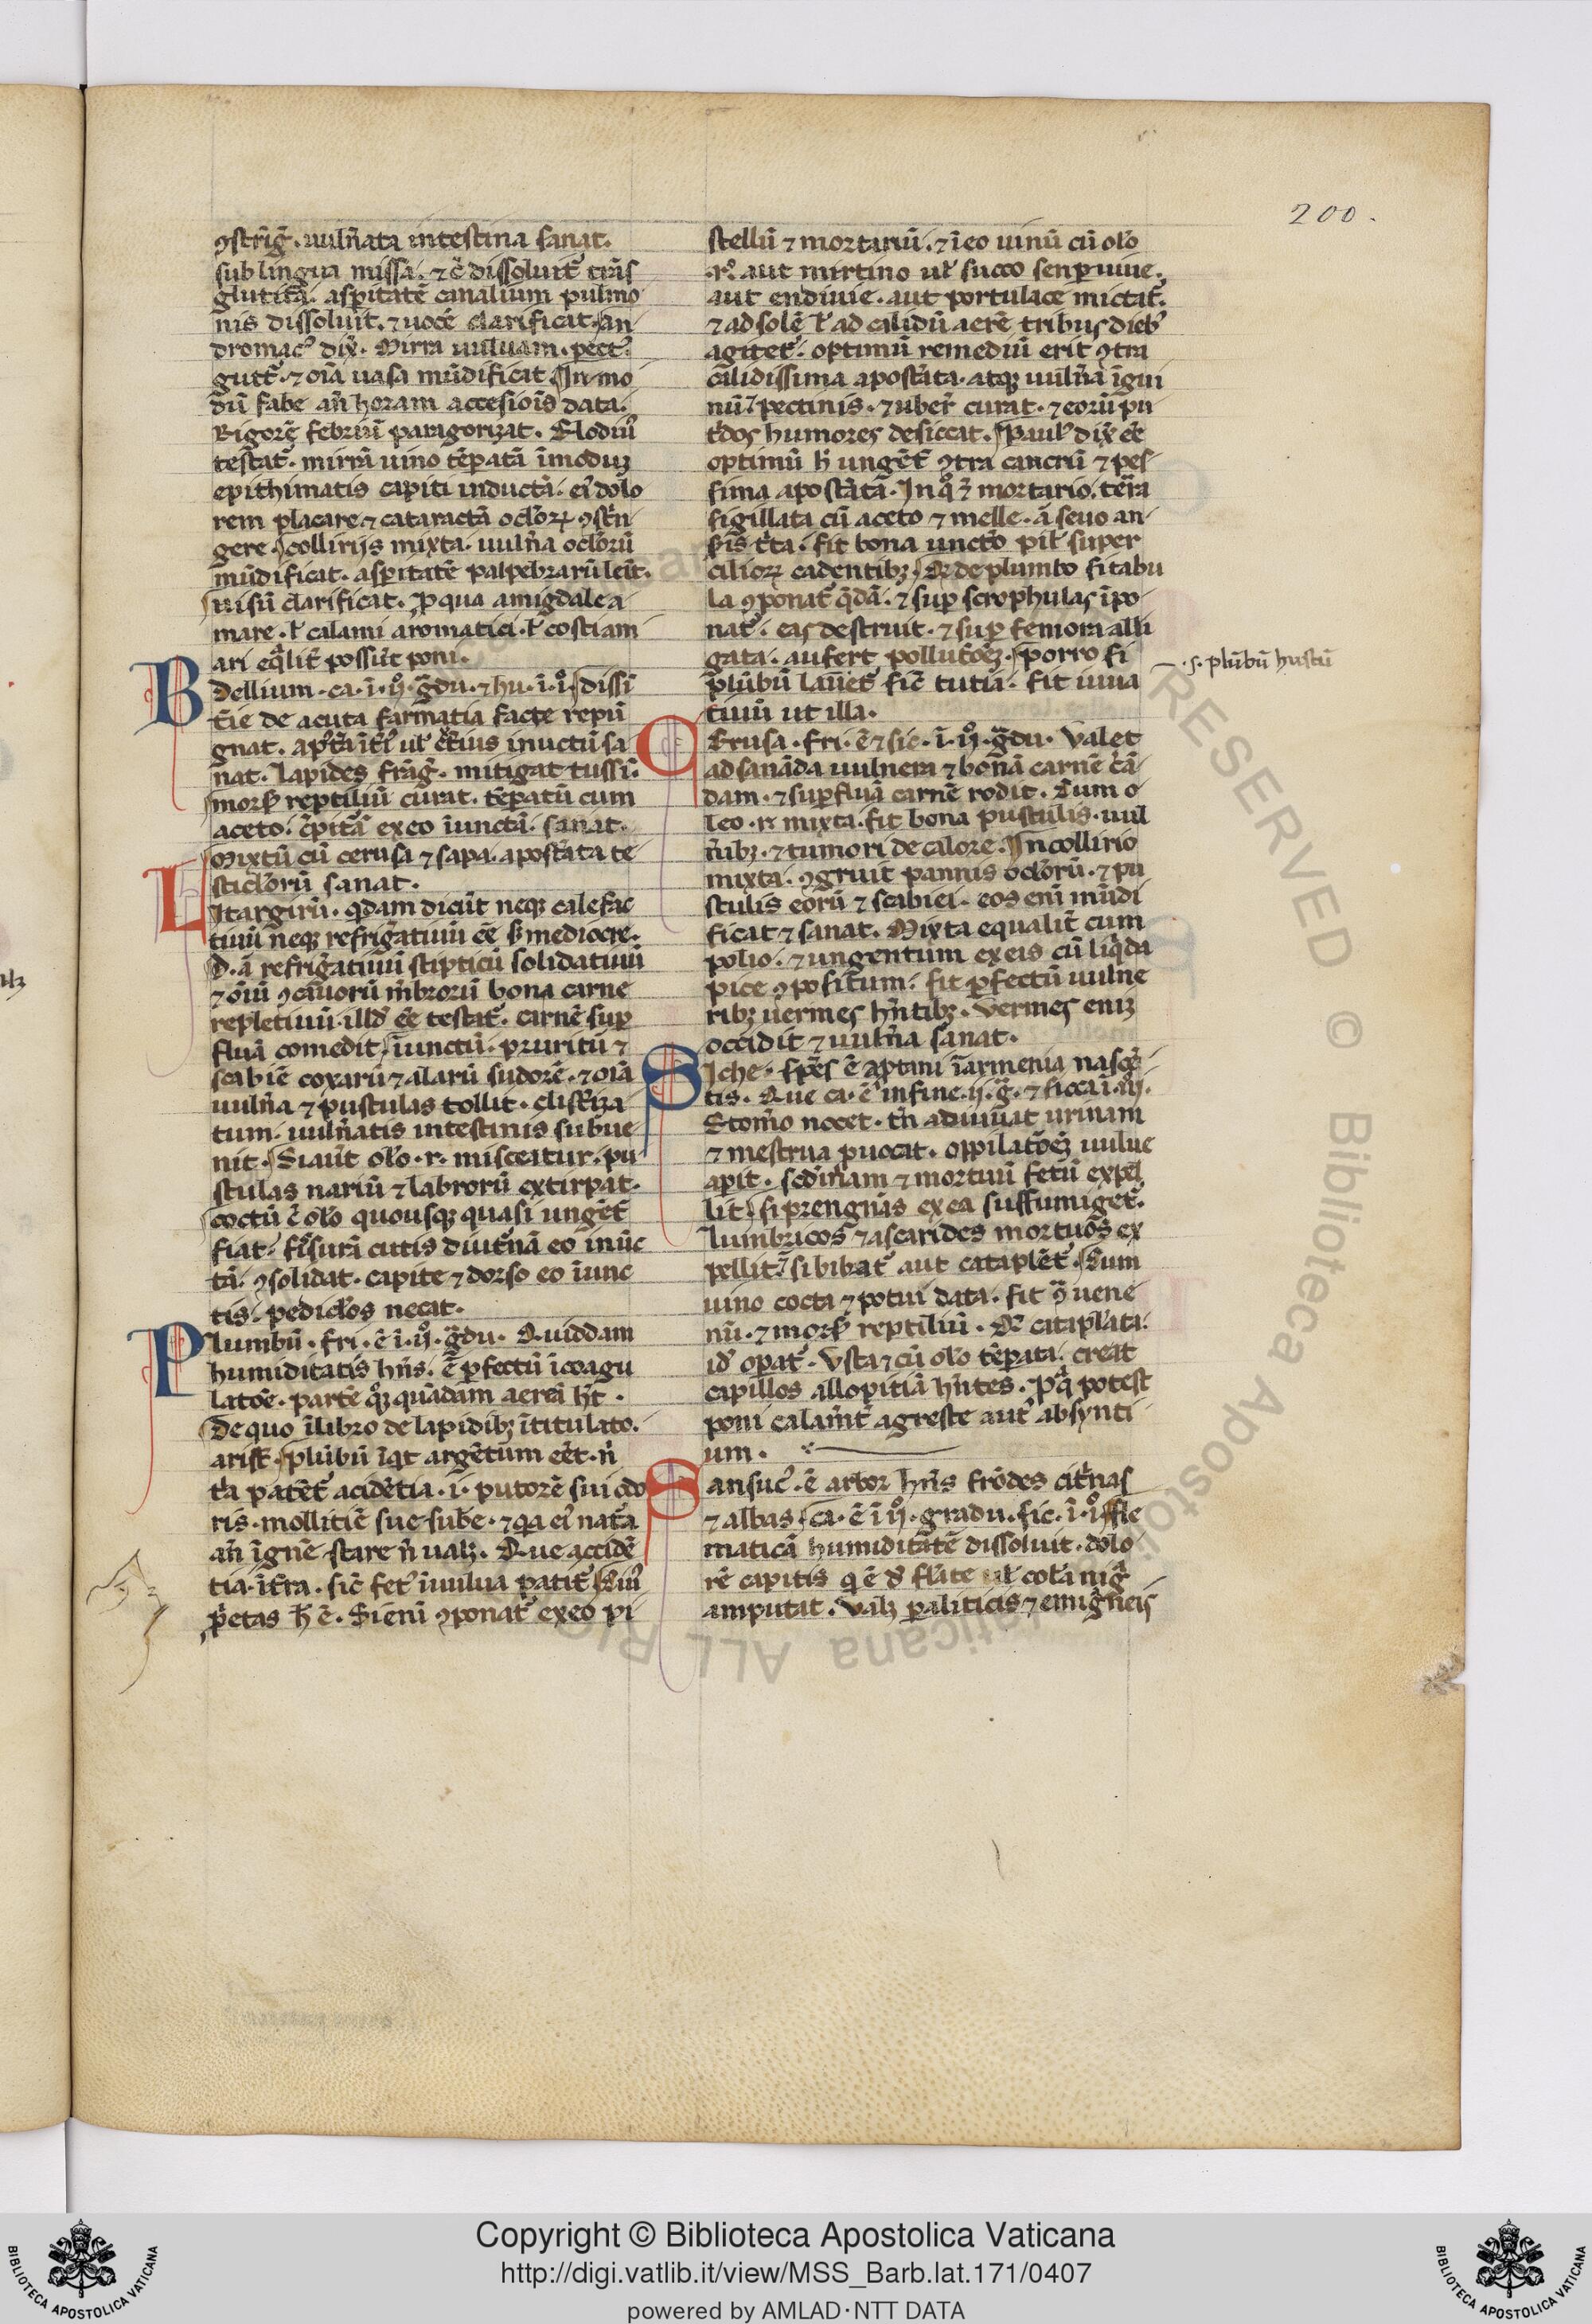 200.
ꝯstrīg̃. uuln̄ata intestina sanat.
sub lingua missa. ⁊ c̄ dissoluit̃ trās
glutita. asp̄itatē canalium pulmo
nis dissoluit. ⁊ uocē clarificat. an
dromac᷒ dix̄. Mirra uuluam. pect᷒
gutt᷒. ⁊ oīa uasa mūdificat. In mo
dū fabe an̄ horam accesiois̄ data.
Rigorē febriū paragorizat.
testat᷒. mirrā uino tēperatā ī moduꝫ
epithimatis capiti inducta. ei᷒ dolo
rem placare ⁊ cataractā oclōꝝ ꝯstrī
gere. collirijs mixta. uuln̄a oclōrū
mūdificat. asp̄itatē palpebrarū leīt.
uisū clarificat. ꝓ qua amigdale a
mare. ł calami aromatici. ł costi am
ari eq̄lit̃ possūt poni.
Bdellium. ca. ī. ij°. g̃du. ⁊ hu. ī. i°. dissī
t̃ie de acuta farmatia facte repū
gnat. ap̄tā īt̃i᷒ uł ext̃ius inuctū sa
nat. lapides frāg̃. mitigat tussī.
mors᷒ reptiliū curat. tēperatū cum
aceto. c̄pitā ex eo iunctā. sanat.
Mixtū cū cerusa ⁊ sapa. apostata te
sticlōrū sanat.
Litargirū. qdam dicūt neqꝫ calefac
tiuū neqꝫ refrig̃atiuū cē s᷒ mediocre.
D. ā refrig̃atiuū stipticū solidatiuū
⁊ oīū ꝯcauorū mēbrorū bona carne
repletiuū. illd᷒ eē testat᷒. carnē sup̄
fluā comedit. iunctū. pruritū ⁊
scabiē coxarū ⁊ alarū sudorē. ⁊ oīa
uuln̄a ⁊ pustulas tollit. clist̃iza
tum. uuln̄atis intestinis subue
nit. Si aūt olō. r. misceatur. pu
stulas nariū ⁊ labrorū extirpat.
coctū c̄ olō quousqꝫ quasi ungēt̃
fiat. fi᷒surā cutis diut̃nā eo inūc
tā. ꝯsolidat. capite ⁊ dorso eo iunc
tis. pediclōs necat.
Plumbū. fri. ē ī. ij°. g̃du. Quiddam
humiditatis hn̄s. ē ꝑfectū ī coagu
latōe. partē q̄ꝫ quādam aereā ht̄.
De quo ī libro de lapidibꝫ ītitulato.
arist̃. plūbū īqt argētum eēt. n̄
t̃a patēt᷒ acidētia. i. putorē sui odo
ris. mollitiē sue sube. ⁊ qa ei᷒ nat̃a
an̄ ignē stare n̄ ualꝫ. Que accidē
tia. īt̃ra. sic̄ fet᷒ ī uulua patit᷒. Cui᷒
ꝓp̄etas h̄ ē. Si enī ꝯponat᷒ ex eo pi
stellū ⁊ mortariū. ⁊ ī eo uinū cū olō
.r°. aut mirtino uł succo senp uiue.
aut endiuie. aut portulace mictat᷒.
⁊ ad solē ł ad calidū aerē tribus dieb᷒
agitet᷒. optimū remediū erit ꝯtra
calidissima apostata. atqꝫ uuln̄a īgui
nū ⁊ pectinis. ⁊ uber̄ curat. ⁊ eorū pu
t̃dos humores desiccat. Paul᷒ dix̄ ee
optimū h̄ ungēt̃ ꝯtra cancrū ⁊ pes
sima apostatā. In q° ⁊ mortario. terra
sigillata cū aceto ⁊ melle. ā seuo an
s̃is t̃ta. fit bona unctō pił super
cilioꝝ cadentibꝫ. Qr̄ de plumbo si tabu
la ꝯponat᷒ q̄dā. ⁊ sup̄ scrophulas īpo
nat᷒. eas destruit. ⁊ sup̄ femora alli
gata. aufert pollutōeꝫ. porro si
plūbū lauet᷒ sic̄ tutia. fit iuua
tiuū ut illa.
.s. plūbū hustū
Cerusa. fri. ē ⁊ sic. ī. ij°. g̃du. Valet
ad sanāda uulnera ⁊ bonā carnē c̃ā
dam. ⁊ sup̄fluā carnē rodit. Cum o
leo. r. mixta. fit bona pustulis. uul
n̄ibꝫ. ⁊ tumori de calore. In collirio
mixta. ꝯgruit pannis oclōrū. ⁊ pu
stulis eorū ⁊ scabiei. eos enī mūdi
ficat ⁊ sanat. Mixta equalit̃ cum
polio. ⁊ ungentum ex eis cū liq̄da
pice ꝯpositum. fit ꝑfectū uulne
ribꝫ uermes hn̄tibꝫ. Vermes eniꝫ
occidit ⁊ uuln̄a sanat.
Siche. sp̄es ē aptani ī armenia nascē
tis. Que ca. ē in fine. ij. g̃. ⁊ sicca ī. iij.
Stomō nocet. tn̄ adiuuat urinam
⁊ mestrua ꝓuocat. oppilatōeꝫ uulue
apit. secdinam ⁊ mortuū fetū expel
lit. si prengnās ex ea suffumiget᷒.
lumbricos ⁊ ascarides mortuos ex
pellit. si bibat᷒ aut cataplēt᷒. Cum
uino cocta ⁊ potui data. fit ꝯ uene
nū. ⁊ mors᷒ reptiliū. Qr̄ cataplata.
id᷒ opat᷒. Vsta ⁊ cū olō tēperata. creat
capillos allopitiā hn̄tes. ꝓ q̄ potest
poni calamt̃ agreste aut absynti
um.
Sansuc᷒. ē arbor hn̄s frōdes cit̃nas
⁊ albas. ca. ē ī ij°. gradu. sic. ī. i°. fle
maticā humiditatē dissoluit. dolo
rē capitis q̄ ē d᷒ flate uł col̄a nig̃
amputat. Valꝫ paliticis ⁊ emig̃neis
Copyright © Biblioteca Apostolica Vaticana
http://digi.vatlib.it/view/MSS_Barb.lat.171/0407
powered by AMLAD·NTT DATA
BIBLIOTECA APOSTOLICA VATICANA
BIBLIOTECA APOSTOLICA VATICANA
ALL RIGHTS RESERVED © Biblioteca Apostolica Vaticana